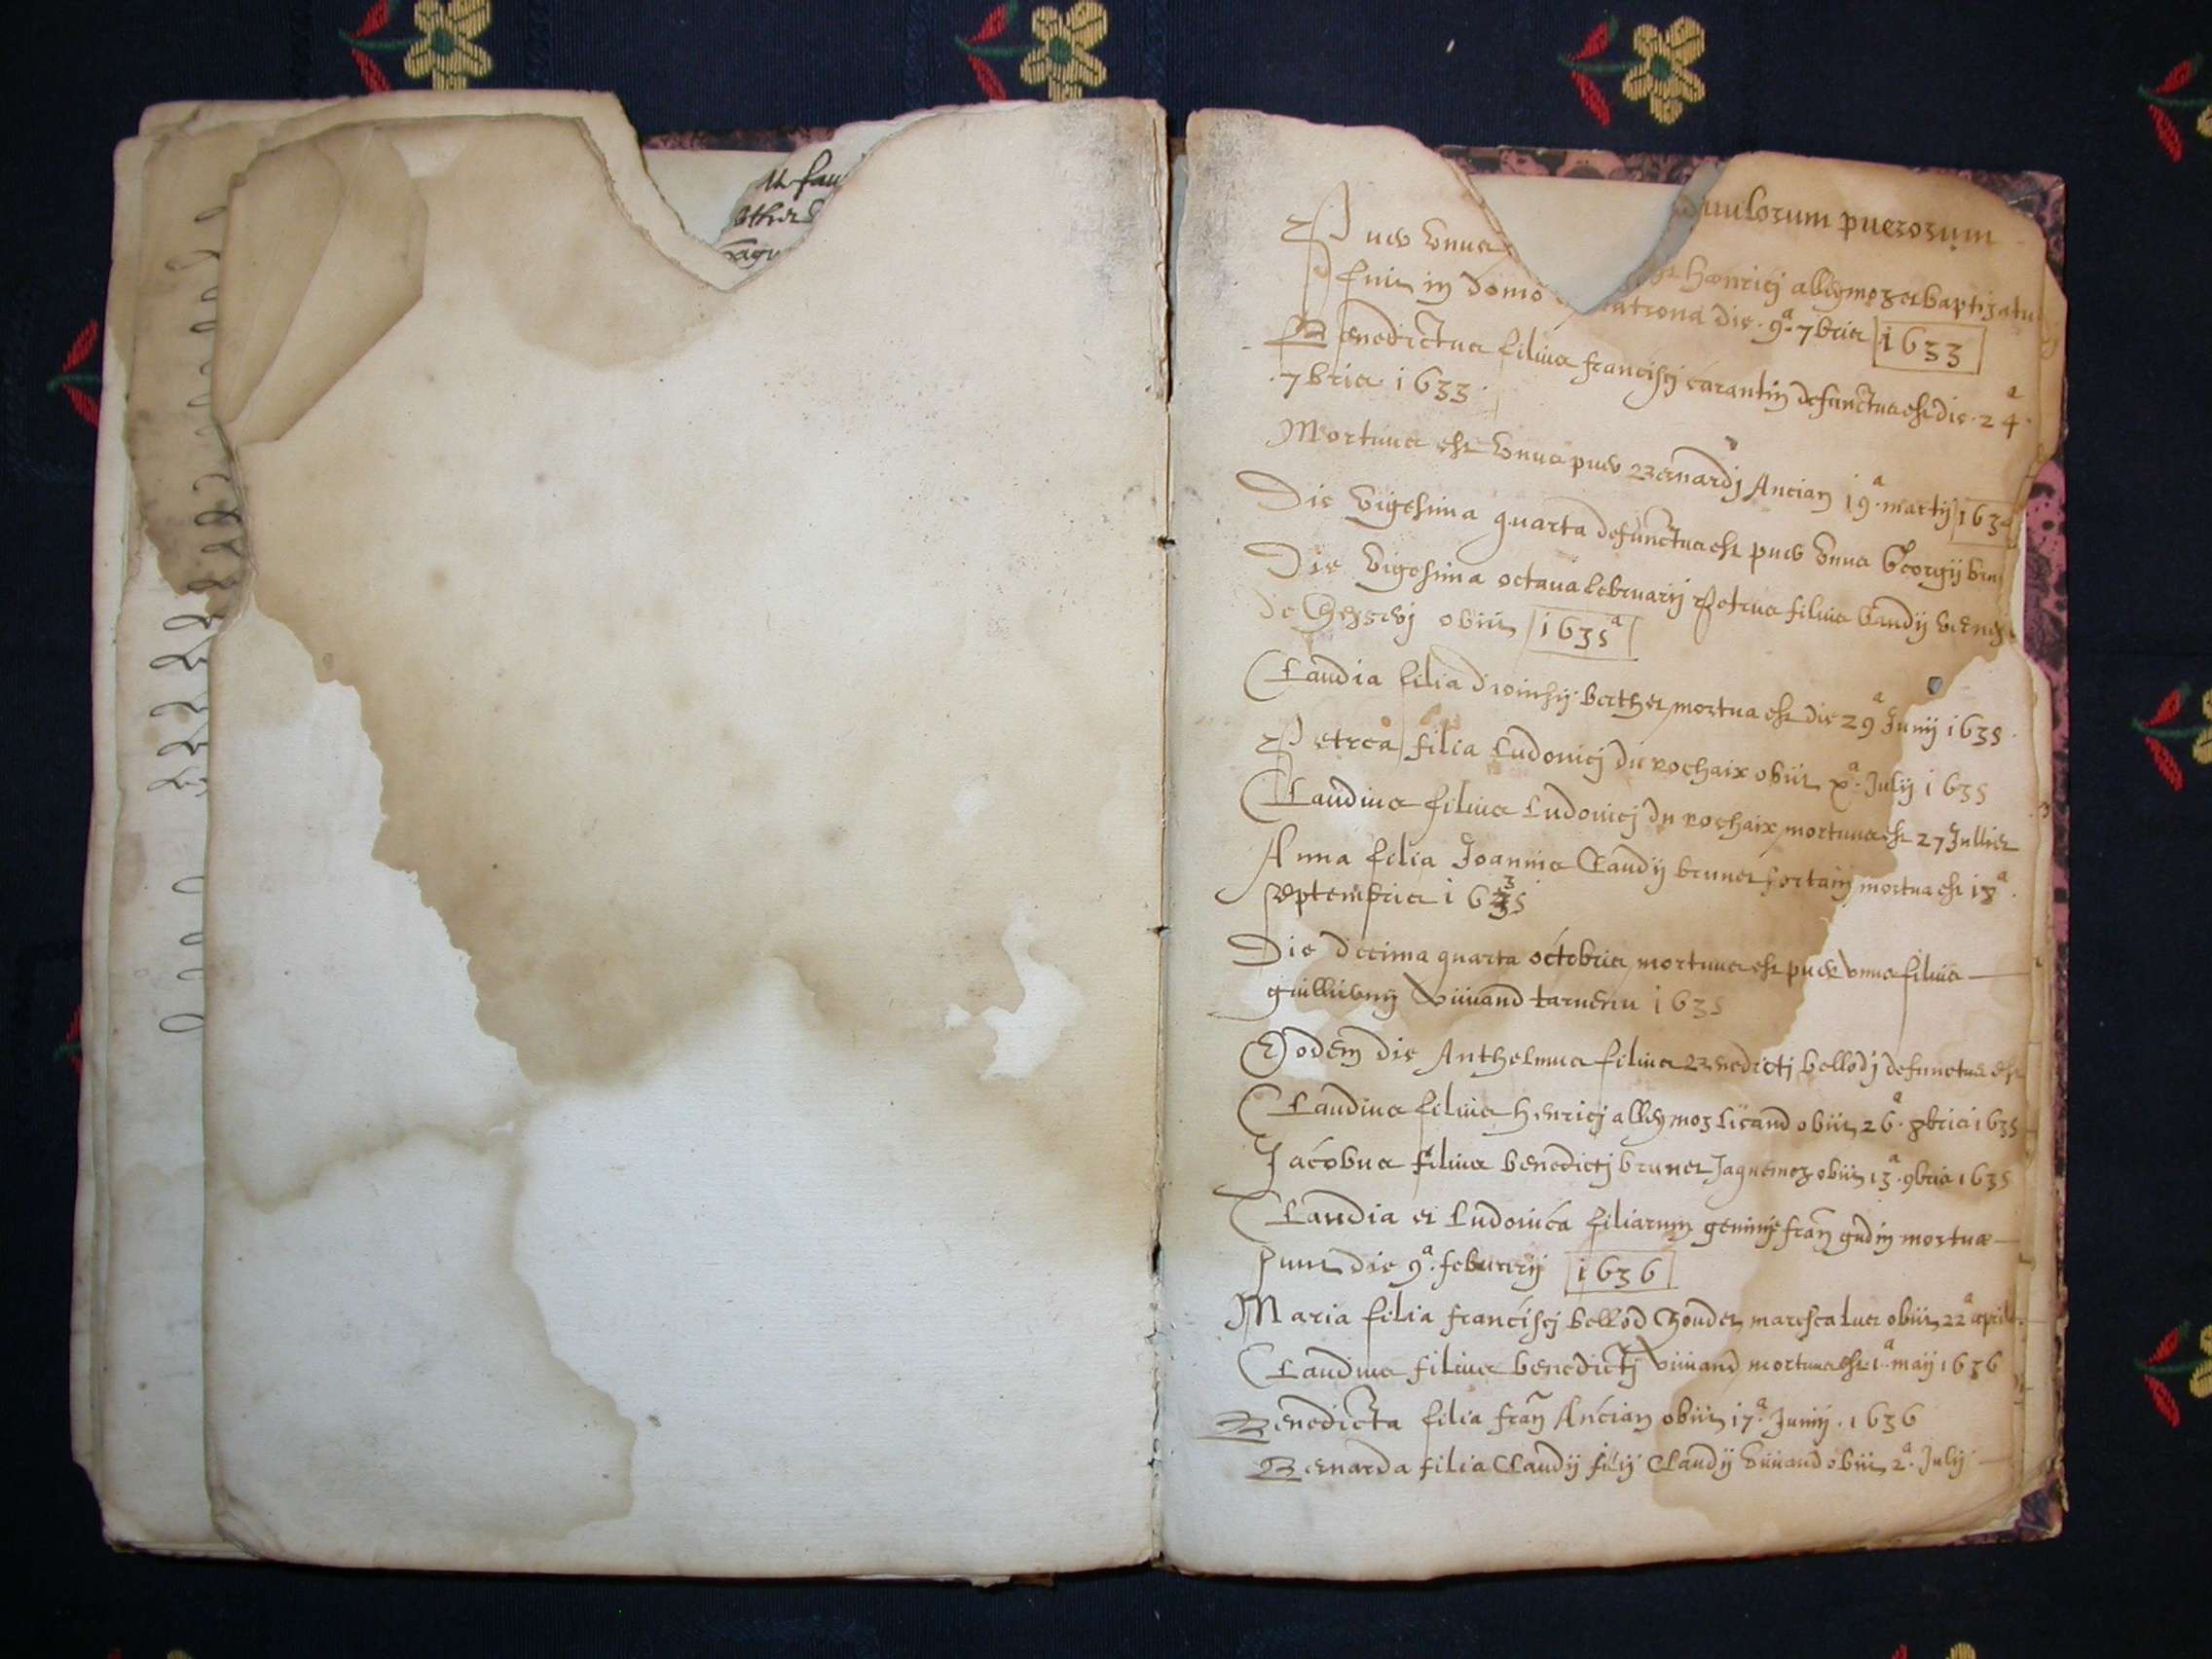 uulorum puerorum
Puer vnus henricj alleymoz et baptizatu
fuit in domo matrona die 9a 7bris 1633
Benedictus filius franciscj carantin defunctus est die 24a
7bris 1633
Mortuus est vnus puer Bernardj Ancian 19a martij 1634
Die vigesima quarta defunctus est puer vnus Georgij
Die vigesima octaua februarij Petrus filius
de obiit 1635
Claudia filia berthet mortua est die 29a Junij 1635
Petrea filia Ludouicj du rochaix obiit xa Julij 1635
Claudius filius Ludouicj du rochaix mortuus est 27 Julliet
Anna filia Joannis Claudij brunet mortua est 18a
septembris 1635
Die decima quarta octobris mortuus est puer vnus filius
guilliermj viuand 1635
Eodem die Anthelmus filius Benedictj bellodj defunctus est
Claudius filius henricj alleymoz Licand obiit 26a 8bris 1635
Jacobus filius benedictj brunet Jaquemoz obiit 13a 9bris 1635
Claudia et Ludouica filiarum geminis fran gudin mortuæ
sunt die 9a 1636
Maria filia franciscj bellod marescalus obiit 22a april
Claudius filius benedictj viuand mortuus est 1a maij 1636
Benedicta filia fran Ancian obiit 17a Junij 1636
Bernarda filia Claudij filij Claudij viuand obiit 2a Julij